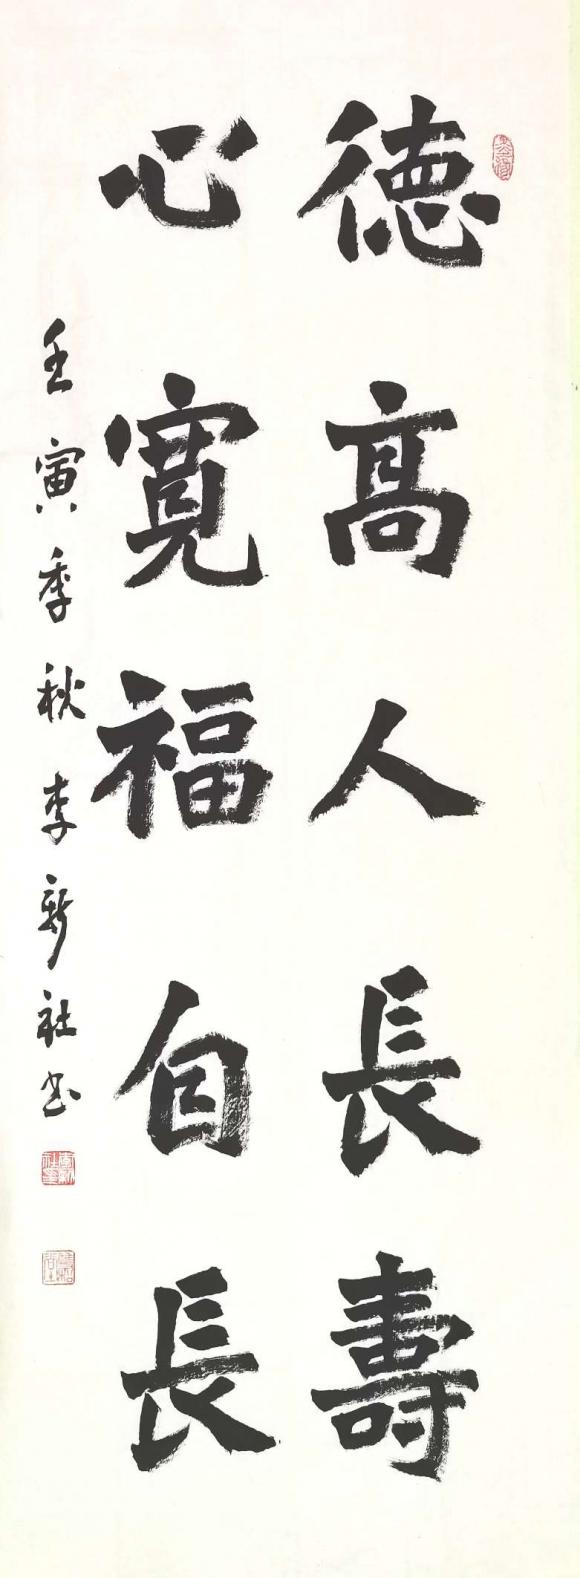 德高人長壽
心寬福自長
壬寅季秋李新社书